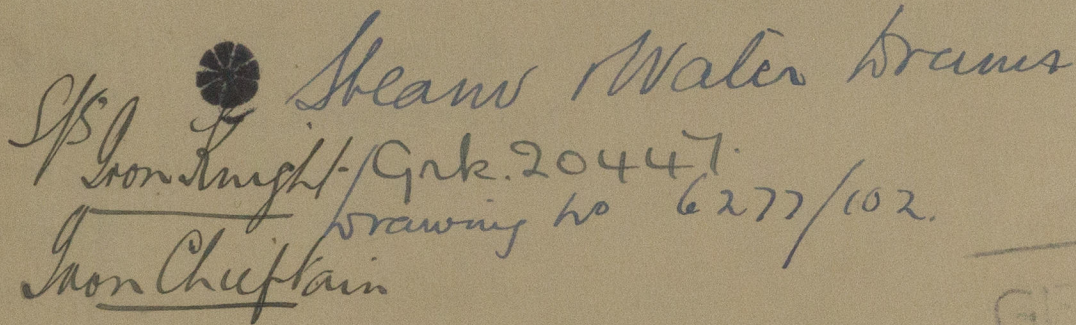 Steam & Water Drums
S/S Iron Knight. / Grk. 20447.
Drawing No 6277/102.
Iron Chieftain